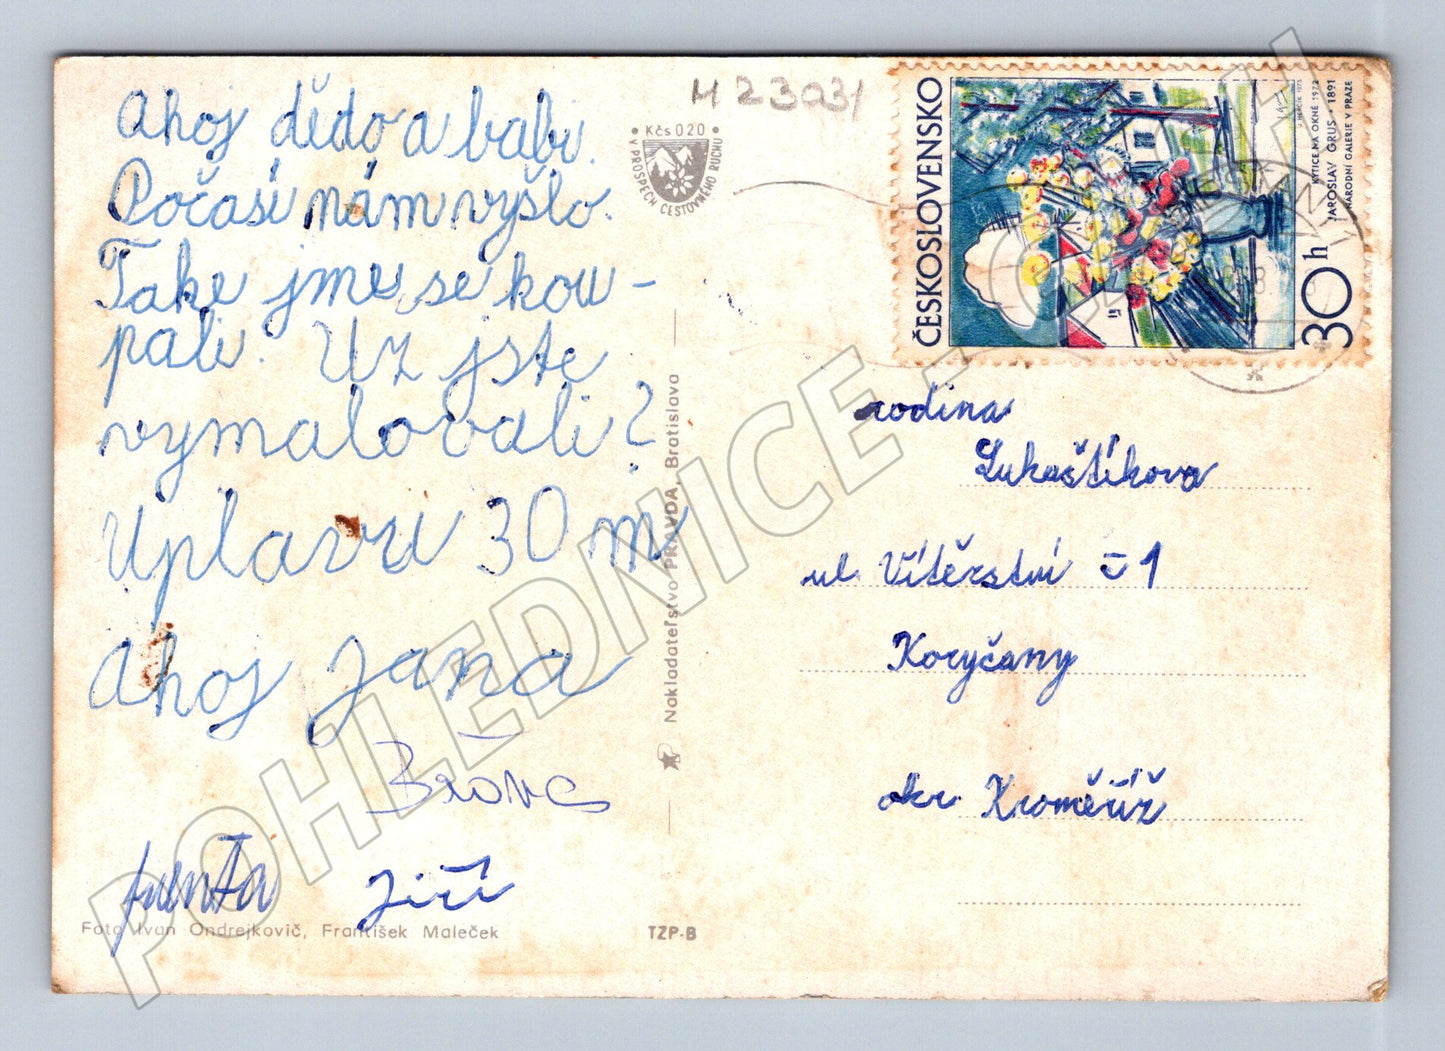 Ahoj dědo a babi.
Počasí nám vyšlo.
Take jmu se kou-
pali. Uz jste
vymalovali?
Uplavu 30 m
Ahoj Jana
Jiří
Foto Ivan Ondrejkovič, František Maleček
TZP-B
H 23031
Kčs 020
V PROSPECH CESTOVNÉHO RUCHU
Nakladateľstvo PRAVDA, Bratislava
ČESKOSLOVENSKO
30h
KYTICE NA OKNĚ 1972
JAROSLAV GRUS * 1891
NÁRODNÍ GALERIE V PRAZE
rodina
Lukaštíkova
ul. Vítěrství č 1
Koryčany
okr. Kroměříž
POHLEDNICE